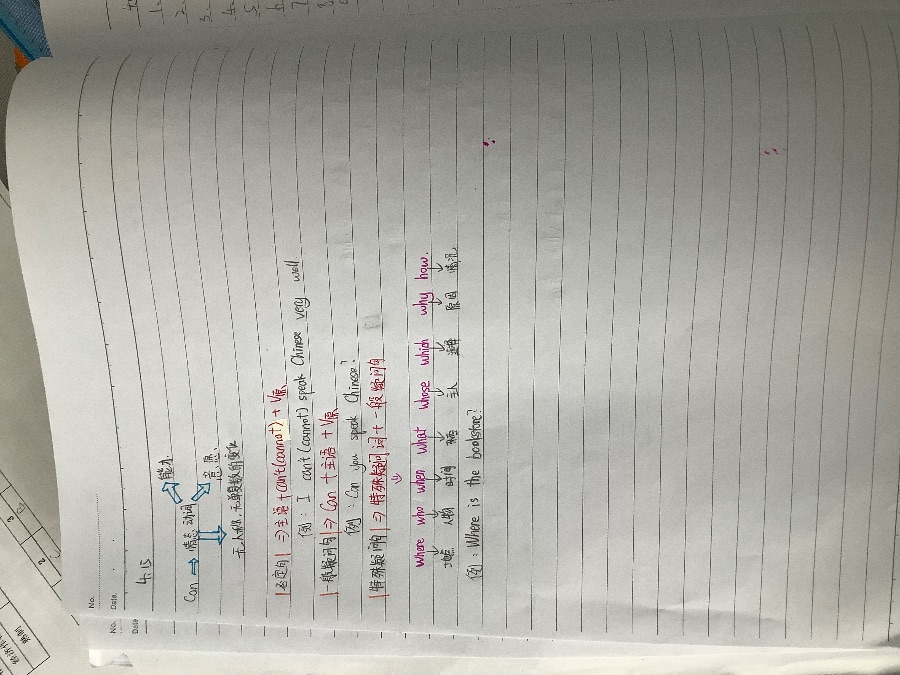 No.
Date
4.15
能力
Can → 情态动词
意愿
无人称、无单复数的变化
否定句 ⇒ 主语 + can't (cannot) + V原
例: I can't (cannot) speak Chinese very well
一般疑问句 ⇒ Can + 主语 + V原
例: Can you speak Chinese?
特殊疑问句 ⇒ 特殊疑问词 + 一般疑问句
where who when what whose which why how.
地点 人物 时间 主人 选择 原因 情况
例: Where is the bookstore?